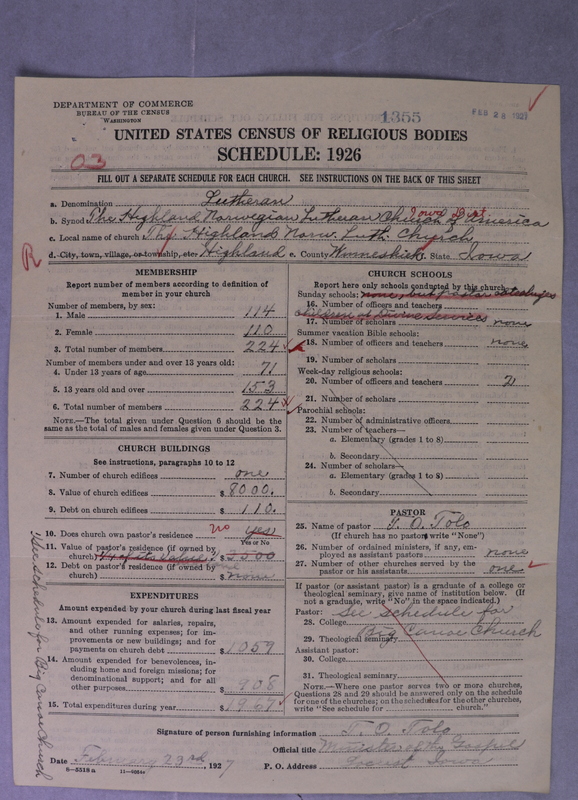 DEPARTMENT OF COMMERCE
BUREAU OF THE CENSUS
WASHINGTON
1355
FEB 28 1927
UNITED STATES CENSUS OF RELIGIOUS BODIES
03
SCHEDULE: 1926
FILL OUT A SEPARATE SCHEDULE FOR EACH CHURCH. SEE INSTRUCTIONS ON THE BACK OF THIS SHEET
a. Denomination Lutheran
Iowa Dist
b. Synod The Highland Norwegian Lutheran Church of America
c. Local name of church The Highland Norw. Luth. Church
R
d. City, town, village, or township, etc Highland e. County Winneshiek f. State Iowa
MEMBERSHIP
Report number of members according to definition of member in your church
Number of members, by sex:
1. Male 114
2. Female 110
3. Total number of members 224
Number of members under and over 13 years old:
4. Under 13 years of age 71
5. 13 years old and over 153
6. Total number of members 224
NOTE.—The total given under Question 6 should be the same as the total of males and females given under Question 3.
CHURCH BUILDINGS
See instructions, paragraphs 10 to 12
7. Number of church edifices one
8. Value of church edifices $ 8000.
9. Debt on church edifices $ 110.
10. Does church own pastor's residence? no yes
Yes or No
11. Value of pastor's residence (if owned by church) $ 2500
12. Debt on pastor's residence (if owned by church) $ none
EXPENDITURES
Amount expended by your church during last fiscal year
13. Amount expended for salaries, repairs, and other running expenses; for improvements or new buildings; and for payments on church debt $ 1059
14. Amount expended for benevolences, including home and foreign missions; for denominational support; and for all other purposes $ 908
15. Total expenditures during year $ 1967
See Schedule for Big Canoe Church
CHURCH SCHOOLS
Report here only schools conducted by this church
Sunday schools: none, but pastor catechizes
16. Number of officers and teachers
children at Divine Services
17. Number of scholars none
Summer vacation Bible schools:
18. Number of officers and teachers none
19. Number of scholars
Week-day religious schools:
20. Number of officers and teachers 2
21. Number of scholars
Parochial schools:
22. Number of administrative officers
23. Number of teachers—
a. Elementary (grades 1 to 8)
b. Secondary
24. Number of scholars—
a. Elementary (grades 1 to 8)
b. Secondary
PASTOR
25. Name of pastor T. O. Tolo
(If church has no pastor write "None")
26. Number of ordained ministers, if any, employed as assistant pastors none
27. Number of other churches served by the pastor or his assistants one
If pastor (or assistant pastor) is a graduate of a college or theological seminary, give name of institution below. (If not a graduate, write "No" in the space indicated.)
Pastor: See schedule for
28. College
Big Canoe Church
29. Theological seminary
Assistant pastor:
30. College
31. Theological seminary
NOTE.—Where one pastor serves two or more churches, Questions 28 and 29 should be answered only on the schedule for one of the churches; on the schedules for the other churches, write "See schedule for ______ church."
Signature of person furnishing information T. O. Tolo
Official title Minister of the Gospel
Date February 23rd, 1927
P. O. Address Locust Iowa